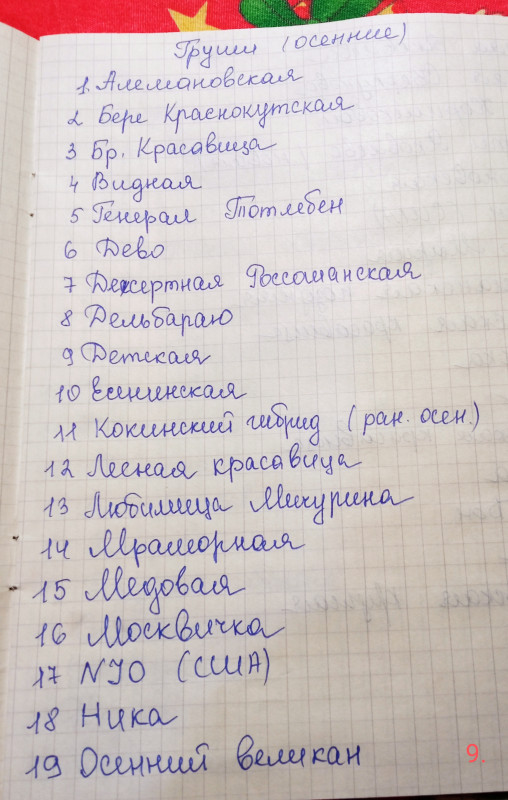 Груши (осенние)
1. Алемановская
2 Бере Краснокутская
3 Бр. Красавица
4 Видная
5 Генерал Тотлебен
6 Дево
7 Десертная Россошанская
8 Дельбараю
9 Детская
10 Есенинская
11 Кокинский гибрид (ран. осен.)
12 Лесная красавица
13 Любимица Мичурина
14 Мраморная
15 Медовая
16 Москвичка
17 NJO (США)
18 Ника
19 Осенний великан
9.